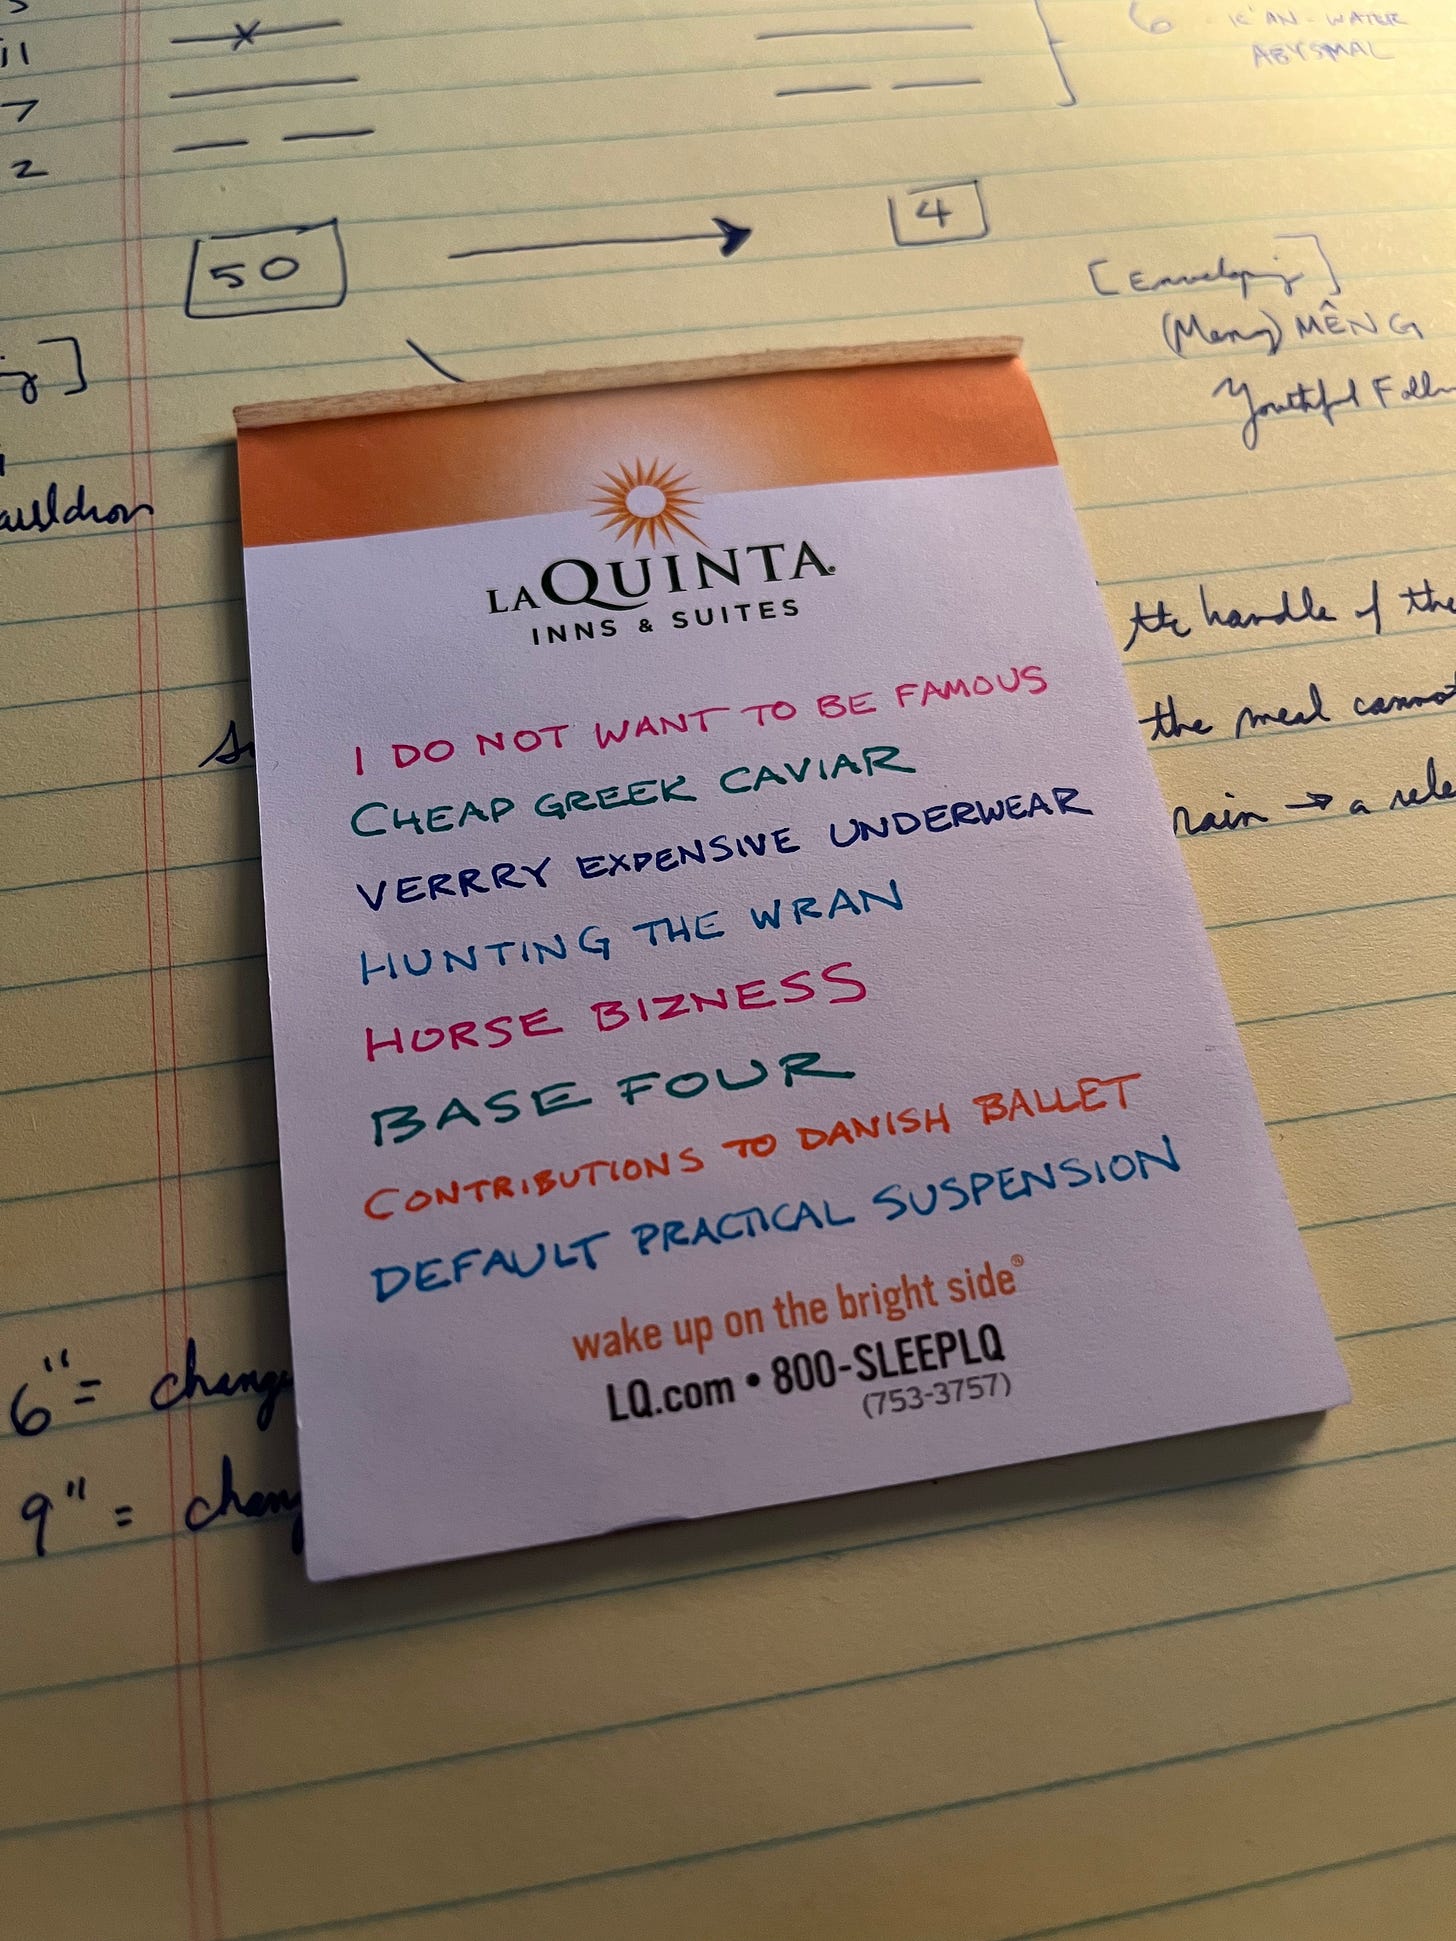 11
6 K'AN - WATER
ABYSMAL
7
2
50
4
[Enveloping]
(Meng) MÊNG
Youthful
the handle of the
the meal
rain → a
LAQUINTA
INNS & SUITES
I DO NOT WANT TO BE FAMOUS
CHEAP GREEK CAVIAR
VERRRY EXPENSIVE UNDERWEAR
HUNTING THE WRAN
HORSE BIZNESS
BASE FOUR
CONTRIBUTIONS TO DANISH BALLET
DEFAULT PRACTICAL SUSPENSION
wake up on the bright side®
LQ.com • 800-SLEEPLQ
(753-3757)
6" = change
9" =